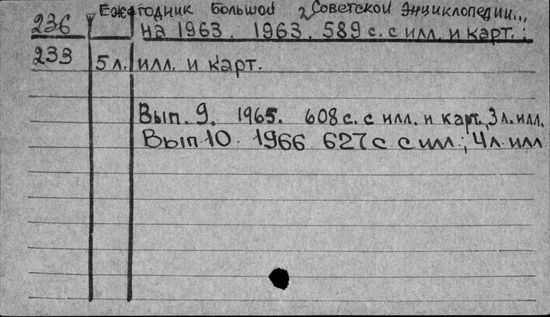 Ежегодник Большой Советской Энциклопедии...
236 на 1963. 1963. 589 с. с илл. и карт.;
233 5 л. илл. и карт.
Вып. 9. 1965. 608 с. с илл. и карт, 3 л. илл.
Вып. 10. 1966 627 с. с илл.; 4 л. илл